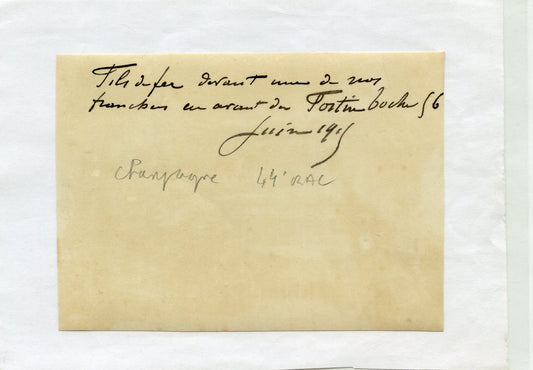 Fils de fer devant une de nos
tranchées en avant du Fortin boche 56
Juin 1915
Champagne 44e RAC